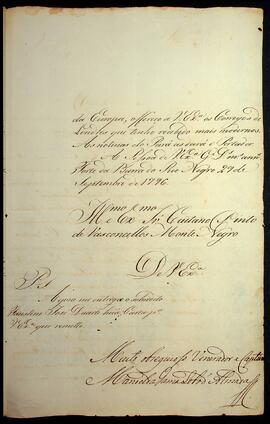 da Europa, offereço a V. Exª. os Correyos de
Londres que tenho recebido mais modernos.
As noticias do Pará as dará o Portador.
A Pessoa de V. Exª. Gᵈᵉ. Dˢ. mˢ. annˢ.
Forte da Barra do Rio Negro 29 de
Septembro de 1796.
Illmo. e Exmo. Sr. Caetano Pinto
de Vasconcellos Monte Negro
De V. Exª.
P. S.
Agora me entrega o
José Duarte huã Carta pª.
V. Exª. que remetto.
Muito obrigᵐᵒ. Venerador e
Manoel da Gama Lobo d'Almada